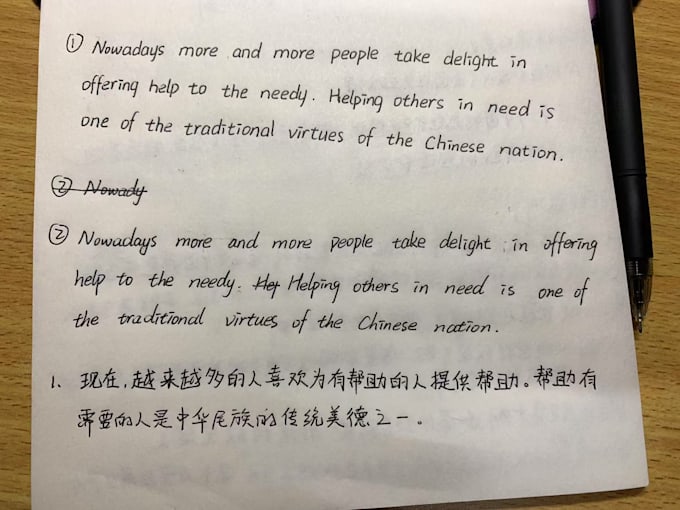 ① Nowadays more and more people take delight in
offering help to the needy. Helping others in need is
one of the traditional virtues of the Chinese nation.
② Nowady
② Nowadays more and more people take delight in offering
help to the needy. Hel Helping others in need is one of
the traditional virtues of the Chinese nation.
1. 现在,越来越多的人喜欢为有帮助的人提供帮助。帮助有
需要的人是中华民族的传统美德之一。